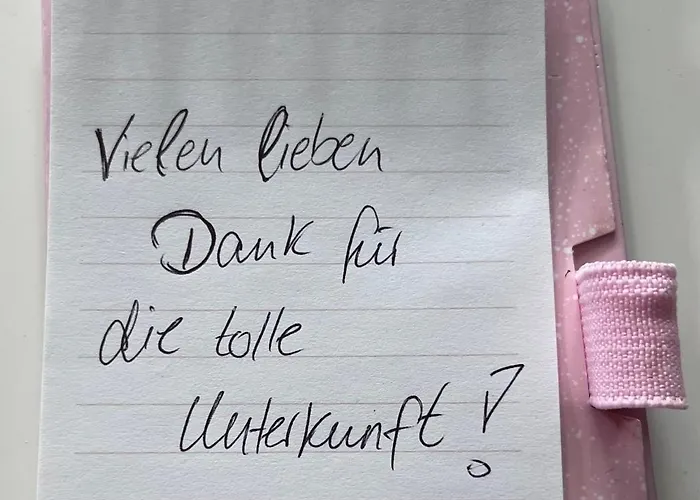 Vielen lieben
Dank für
die tolle
Unterkunft!